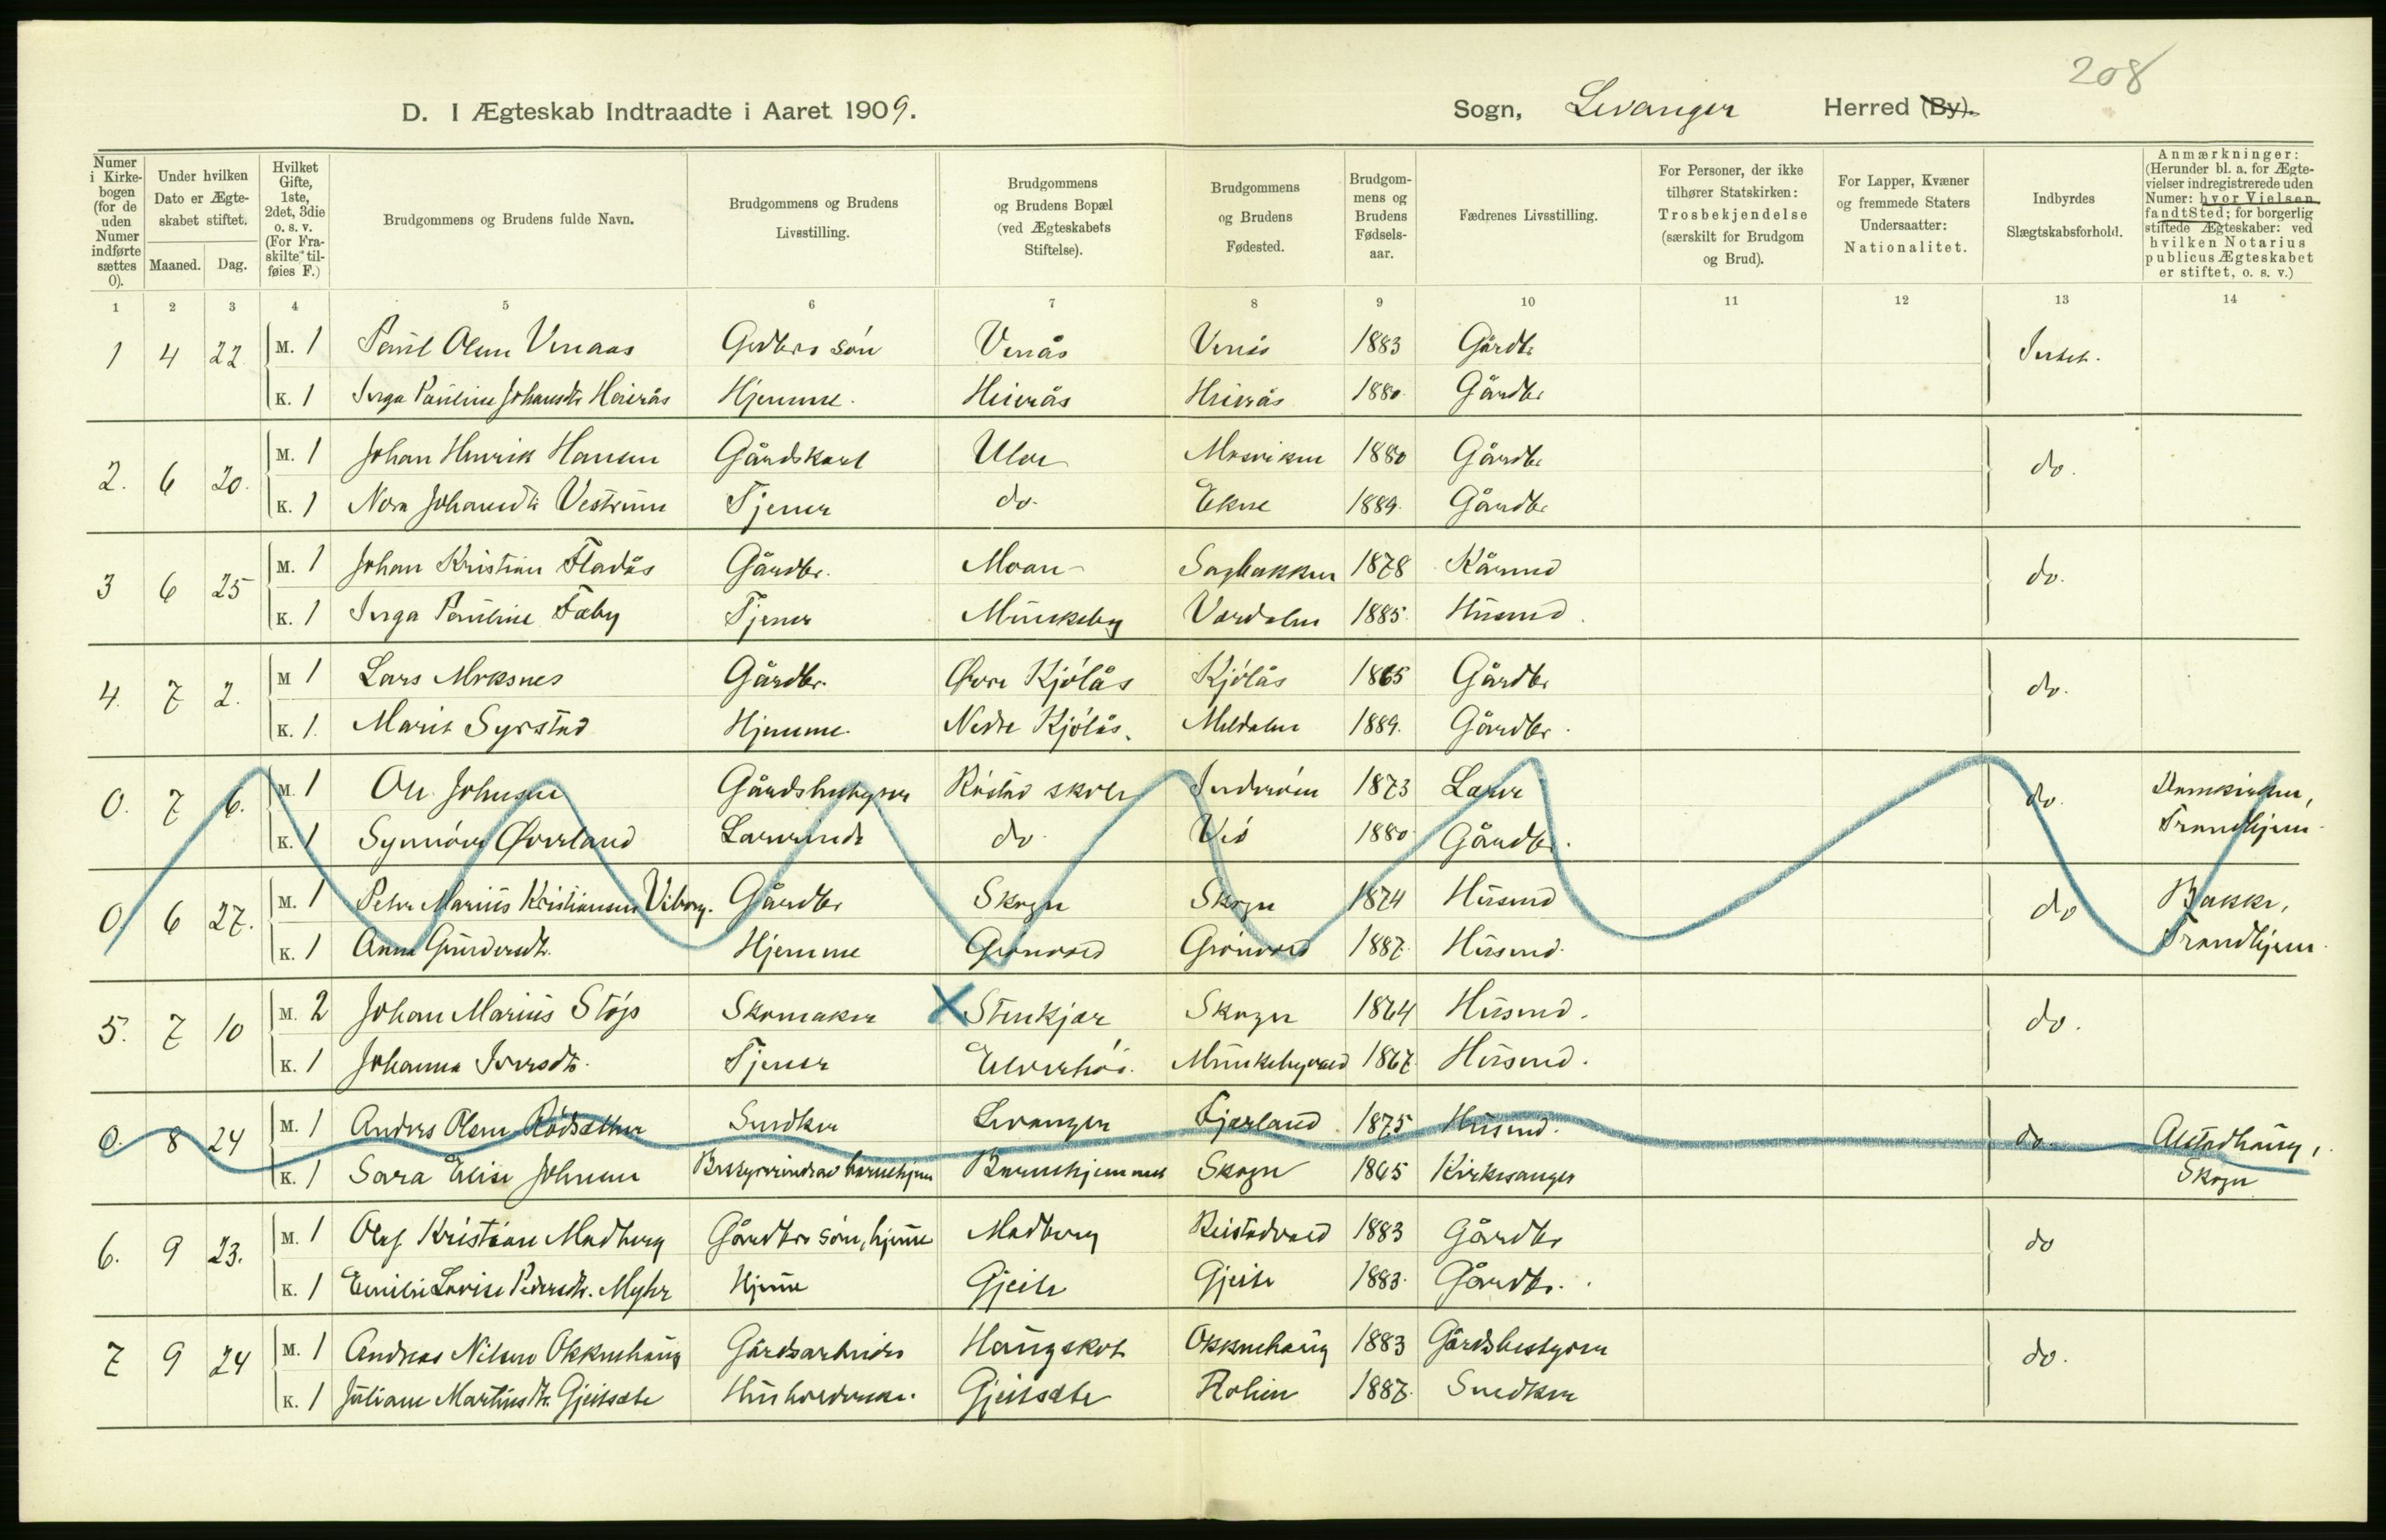 208
D. I Ægteskab Indtraadte i Aaret 1909. Sogn, Levanger Herred (By).
Numer i Kirkebogen (for de uden Numer indførte sættes 0).
Under hvilken Dato er Ægteskabet stiftet.
Maaned. Dag.
Hvilket Gifte, 1ste, 2det, 3die o. s. v. (For Fraskilte tilføies F.)
Brudgommens og Brudens fulde Navn.
Brudgommens og Brudens Livsstilling.
Brudgommens og Brudens Bopæl (ved Ægteskabets Stiftelse).
Brudgommens og Brudens Fødested.
Brudgommens og Brudens Fødselsaar.
Fædrenes Livsstilling.
For Personer, der ikke tilhører Statskirken: Trosbekjendelse (særskilt for Brudgom og Brud).
For Lapper, Kvæner og fremmede Staters Undersaatter: Nationalitet.
Indbyrdes Slægtskabsforhold.
Anmærkninger: (Herunder bl. a. for Ægtevielser indregistrerede uden Numer: hvor Vielsen fandt Sted; for borgerlig stiftede Ægteskaber: ved hvilken Notarius publicus Ægteskabet er stiftet, o. s. v.)
1 2 3 4 5 6 7 8 9 10 11 12 13 14
1 4 22 M. 1 Paul Olsen Venaas Gdbrs søn Venås Venås 1883 Gårdbr Intet.
K. 1 Inga Pauline Johansdtr Heierås Hjemme. Heierås Heierås 1880. Gårdbr
2. 6 20. M. 1 Johan Henrik Hansen Gårdskarl Ulve Mosviken 1880 Gårdbr do.
K. 1 Nora Johansdtr Vestrum Tjener do. Ekne 1889. Gårdbr
3 6 25 M. 1 Johan Kristian Fladås Gårdbr. Moan Sagbakken 1878 Kårmd do.
K. 1 Inga Pauline Fæby Tjener Munkeby Værdalen 1885. Husmd.
4. 7 2. M 1 Lars Moksnes Gårdbr. Øvre Kjølås Kjølås 1865 Gårdbr do.
K. 1. Marit Syrstad Hjemme. Nedre Kjølås. Meldalen 1889. Gårdbr.
0. 7 6. M. 1 Ole Johnsen Gårdsbestyrer Røstad skole Inderøen 1873 Lærer do. Domkirken,
K. 1 Synnøve Øverland Lærerinde do Vis 1880 Gårdbr. Trondhjem.
0. 6 27. M. 1 Peter Marius Kristiansen Viborg. Gårdbr Skogn Skogn 1874 Husmd do Bakke,
K. 1 Anna Gundersdtr. Hjemme Grønvold Grønvold 1887. Husmd. Trondhjem.
5. 7 10 M. 2 Johan Marius Støp Skomaker X Stenkjær Skogn 1864 Husmd. do.
K. 1 Johanna Iversdtr. Tjener Elverhøi. Munkebyvald 1867. Husmd.
0. 8 24 M. 1 Anders Olsen Rødsæther Snedker Levanger Fjærland 1875 Husmd. do. Alstadhaug,
K. 1 Sara Elise Johnsen Bestyrerinde av barnehjem Barnehjemmet Skogn 1865 Kirkesanger Skogn
6. 9 23. M. 1 Olaf Kristian Madberg Gårdbrs søn, hjemme Madberg Reistadvald 1883 Gårdbr do
K. 1 Emilie Lovise Pedersdtr. Myhr Hjemme Gjeite Gjeite 1883. Gårdbr.
7 9 24 M. 1 Andreas Nilsen Okkenhaug Gårdsarbeider Haugskot Okkenhaug 1883 Gårdsbestyrer do.
K. 1 Juliane Martinsdtr. Gjeitsæte Husholderske. Gjeitsæte 1887. Snedker